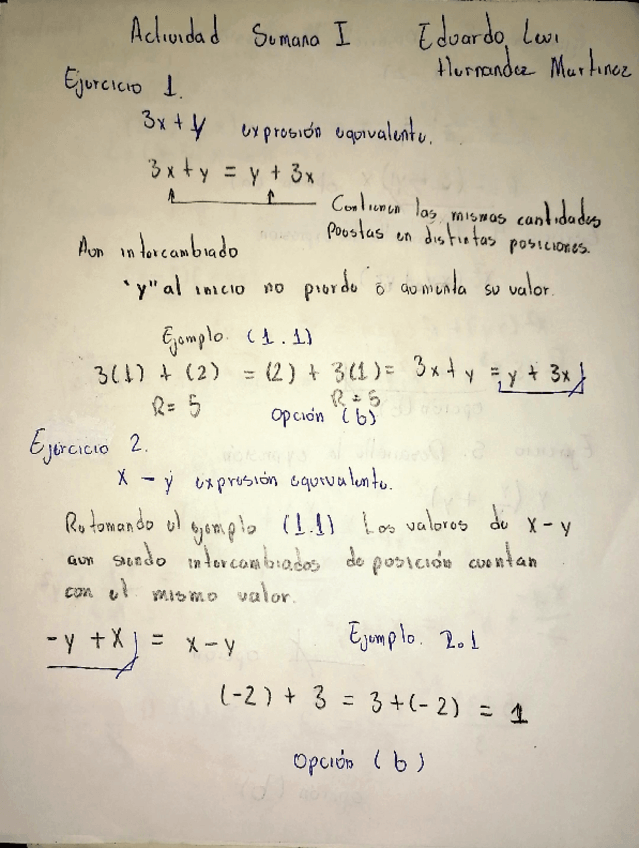 Actividad Semana I Eduardo Levi
Hernandez Martinez
Ejercicio 1.
3x + y expresión equivalente.
3x + y = y + 3x
Contienen las mismas cantidades
Puestas en distintas posiciones.
Aun intercambiado
"y" al inicio no pierde ó aumenta su valor.
Ejemplo. (1.1)
3(1) + (2) = (2) + 3(1) = 3x + y = y + 3x
R= 5 R= 5
Opción (b)
Ejercicio 2.
x - y expresión equivalente.
Retomando el ejemplo (1.1) Los valores de x - y
aun siendo intercambiados de posición cuentan
con el mismo valor.
-y + x = x - y Ejemplo. 2.1
(-2) + 3 = 3 + (-2) = 1
Opción (b)